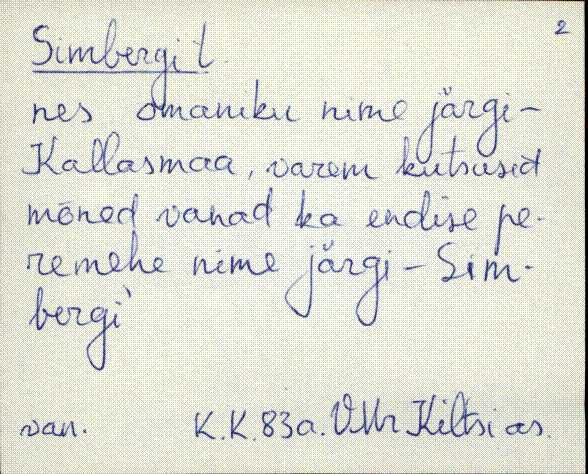 2
Simbergi t.
nes omaniku nime järgi-
Kallasmaa, varem kutsusid
mõned vanad ka endise pe-
remehe nime järgi - Sim-
bergi
van. K.K. 83a. VMr Kiltsi as.